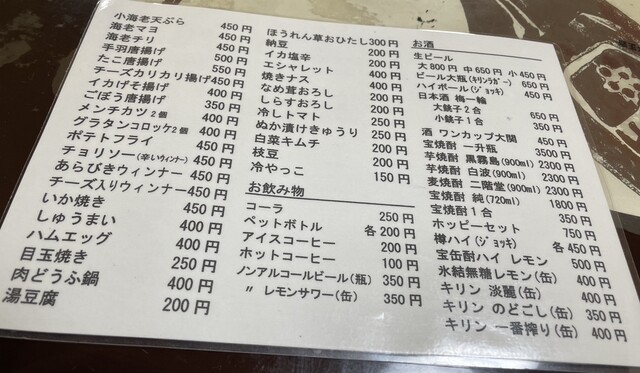 小海老天ぷら 450円
海老マヨ 450円
海老チリ 450円
手羽唐揚げ 500円
たこ唐揚げ 550円
チーズカリカリ揚げ450円
イカげそ揚げ 400円
ごぼう唐揚げ 350円
メンチカツ2個 400円
グラタンコロッケ2個 400円
ポテトフライ 400円
チョリソー(辛いウィンナー) 450円
あらびきウィンナー 450円
チーズ入りウィンナー 450円
いか焼き 450円
しゅうまい 400円
ハムエッグ 400円
目玉焼き 250円
肉どうふ鍋 400円
湯豆腐 200円
ほうれん草おひたし300円
納豆 200円
イカ塩辛 200円
エシャレット 200円
焼きナス 200円
なめ茸おろし 200円
しらすおろし 200円
冷しトマト 300円
ぬか漬けきゅうり 300円
白菜キムチ 200円
枝豆 200円
冷やっこ 150円
お飲み物
コーラ 250円
ペットボトル 各200円
アイスコーヒー 200円
ホットコーヒー 100円
ノンアルコールビール(瓶) 350円
〃 レモンサワー(缶) 350円
お酒
生ビール
大800円 中650円 小450円
ビール大瓶(キリンラガー) 650円
ハイボール(ジョッキ) 450円
日本酒 梅一輪
大銚子2合 650円
小銚子1合 350円
酒 ワンカップ大関 450円
宝焼酎 一升瓶 3500円
芋焼酎 黒霧島(900ml) 2300円
芋焼酎 白波(900ml) 2300円
麦焼酎 二階堂(900ml) 2300円
宝焼酎 純(720ml) 1800円
宝焼酎1合 350円
ホッピーセット 750円
樽ハイ(ジョッキ) 各450円
宝缶酎ハイ レモン 500円
氷結無糖レモン(缶) 400円
キリン 淡麗(缶) 350円
キリン のどごし(缶) 350円
キリン 一番搾り(缶) 400円